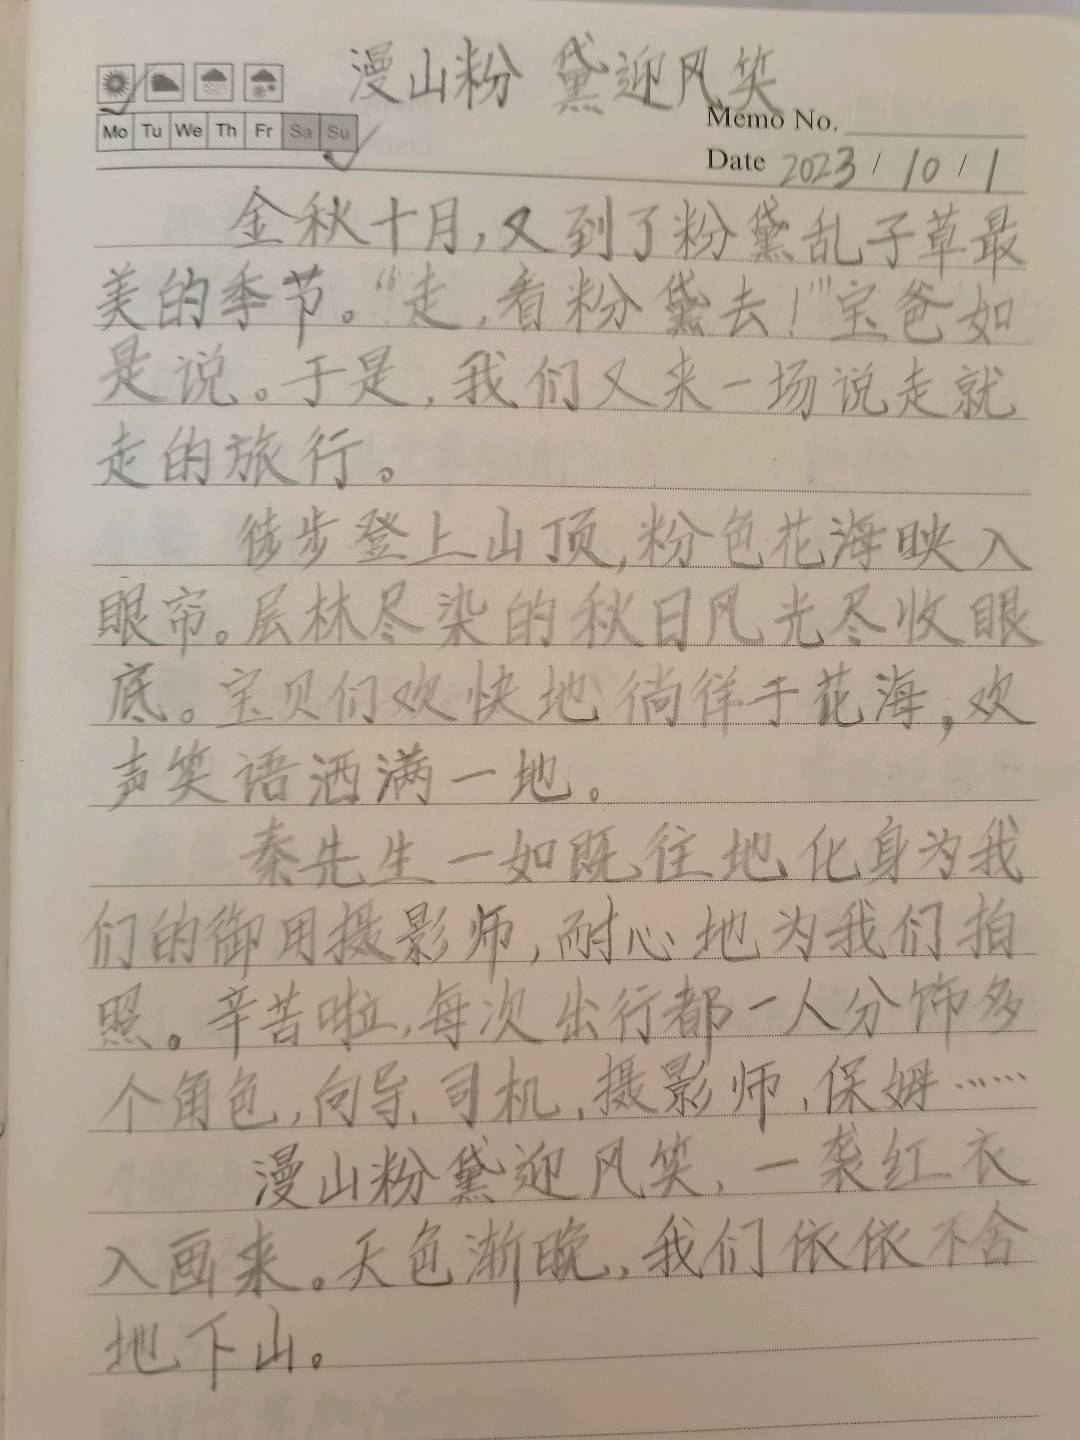 漫山粉黛迎风笑
Mo Tu We Th Fr Sa Su
Memo No.
Date 2023/10/1
金秋十月,又到了粉黛乱子草最
美的季节。“走,看粉黛去!”宝爸如
是说。于是,我们又来一场说走就
走的旅行。
徒步登上山顶,粉色花海映入
眼帘。层林尽染的秋日风光尽收眼
底。宝贝们欢快地徜徉于花海,欢
声笑语洒满一地。
秦先生一如既往地化身为我
们的御用摄影师,耐心地为我们拍
照。辛苦啦,每次出行都一人分饰多
个角色,向导、司机,摄影师,保姆……
漫山粉黛迎风笑,一袭红衣
入画来。天色渐晚,我们依依不舍
地下山。